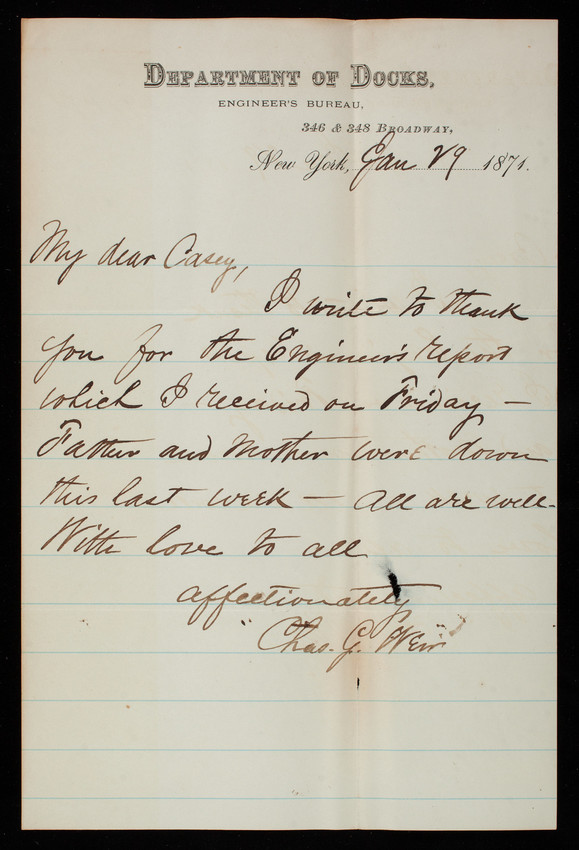 DEPARTMENT OF DOCKS,
ENGINEER'S BUREAU,
346 & 348 BROADWAY,
New York, Jan 29 1871.
My dear Casey,
I write to thank
you for the Engineer's report
which I received on Friday —
Father and Mother were down
this last week — All are well.
With love to all
affectionately
"Chas. G. Weir"